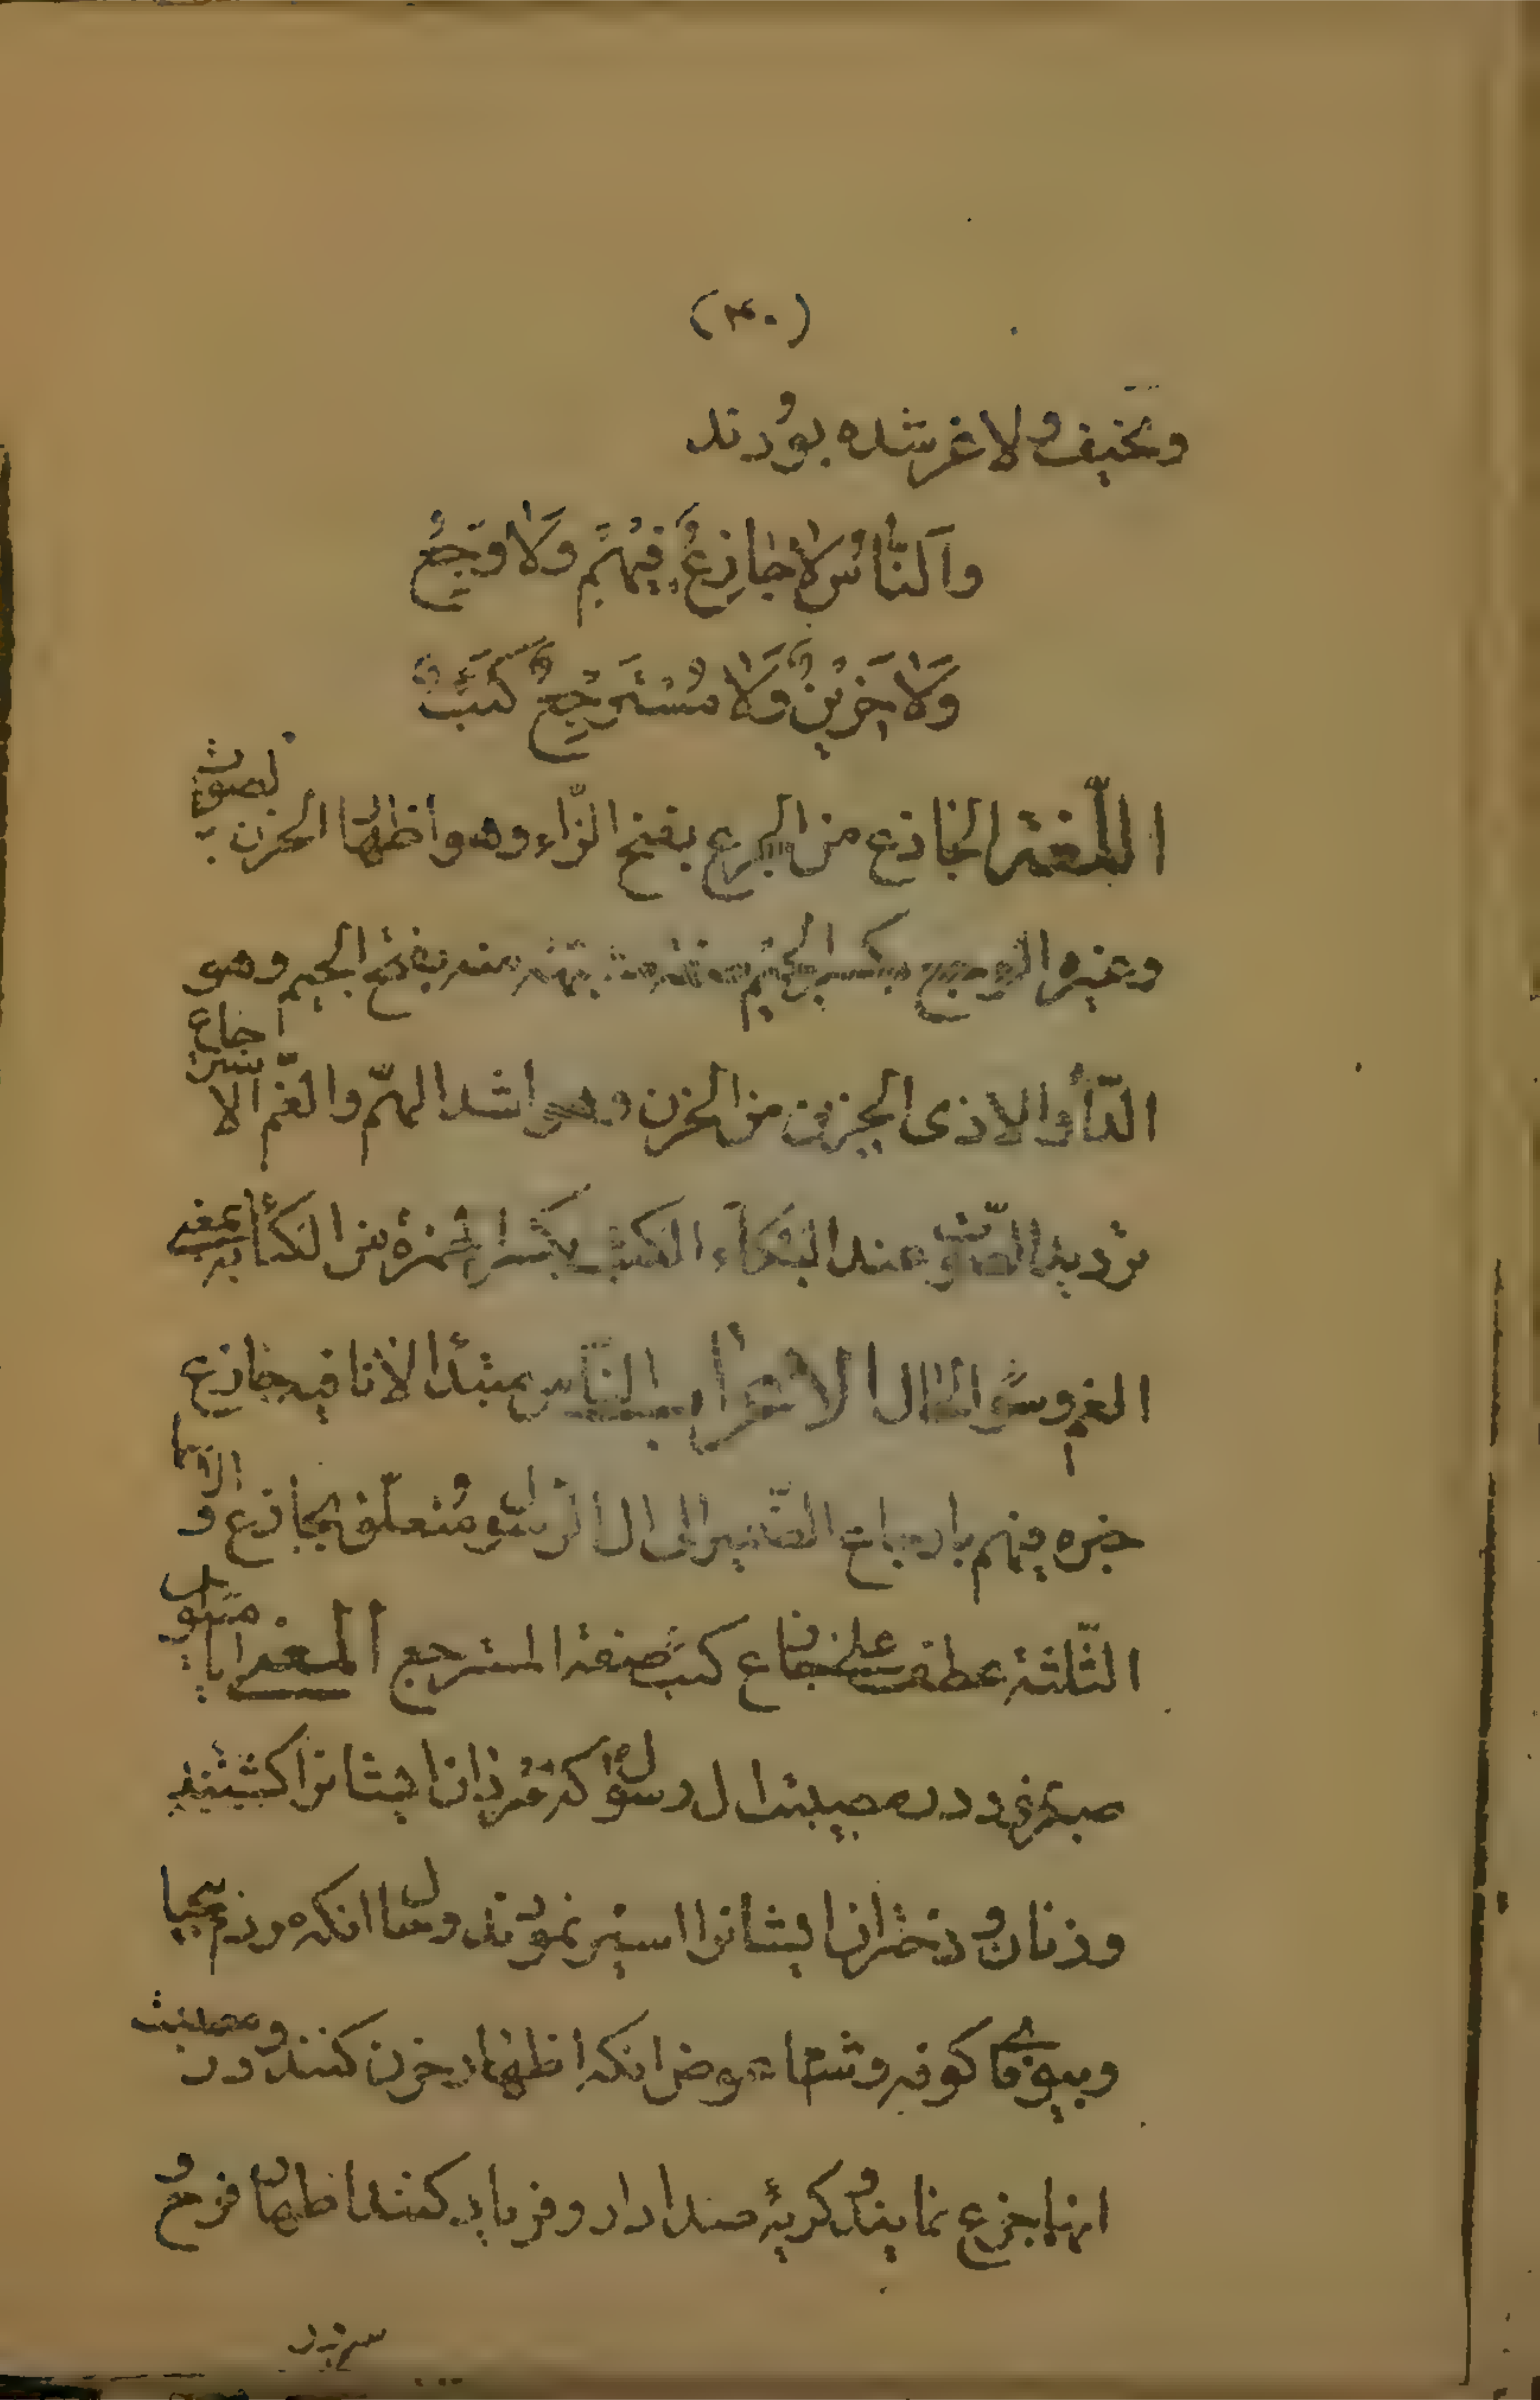 (۴۰)
و نحیف و لاغر شده بودند
وَالنّاسُ لا جازِعٌ فِيهِمْ وَلا وَجِعٌ
وَلا حَزِينٌ وَلا مُسْتَرْجِعٌ كَئِبٌ
اللّغة الجازع من الجزع بفتح الزّاء وهو اظهار الحزن بصوت
وغيره الوجع بكسر الجيم صفة مشبهة منه بفتح الجيم وهو
الدّاء والاذى الحزين من الحزن وهو اشد الهمّ والغّم الاسترجاع
ترديد الصّوت عند البكاء الكئب بكسر الهمزة من الكئابة بمعنى
الغم وسوء الحال الاعراب النّاس مبتدأ لا نافيه جازع
خبره فيهم بارجاع الضّمير الى ال الرّسول متعلّق بجازع و
الثّلثة عطف على جازع كئب صفة المسترجع المعنى
صبتم در مصیبت ال رسول که مردان ایشانرا کشتند
و زنان و دختران ایشانرا اسیر نمودند و حال انکه مردم بیحیا
و بیوفا کوفه و شام عوض انکه اظهار حزن کنند و در مصیبت
انها جزع نمایند و کریه صدا دار و فریاد کنند اظهار فرح و